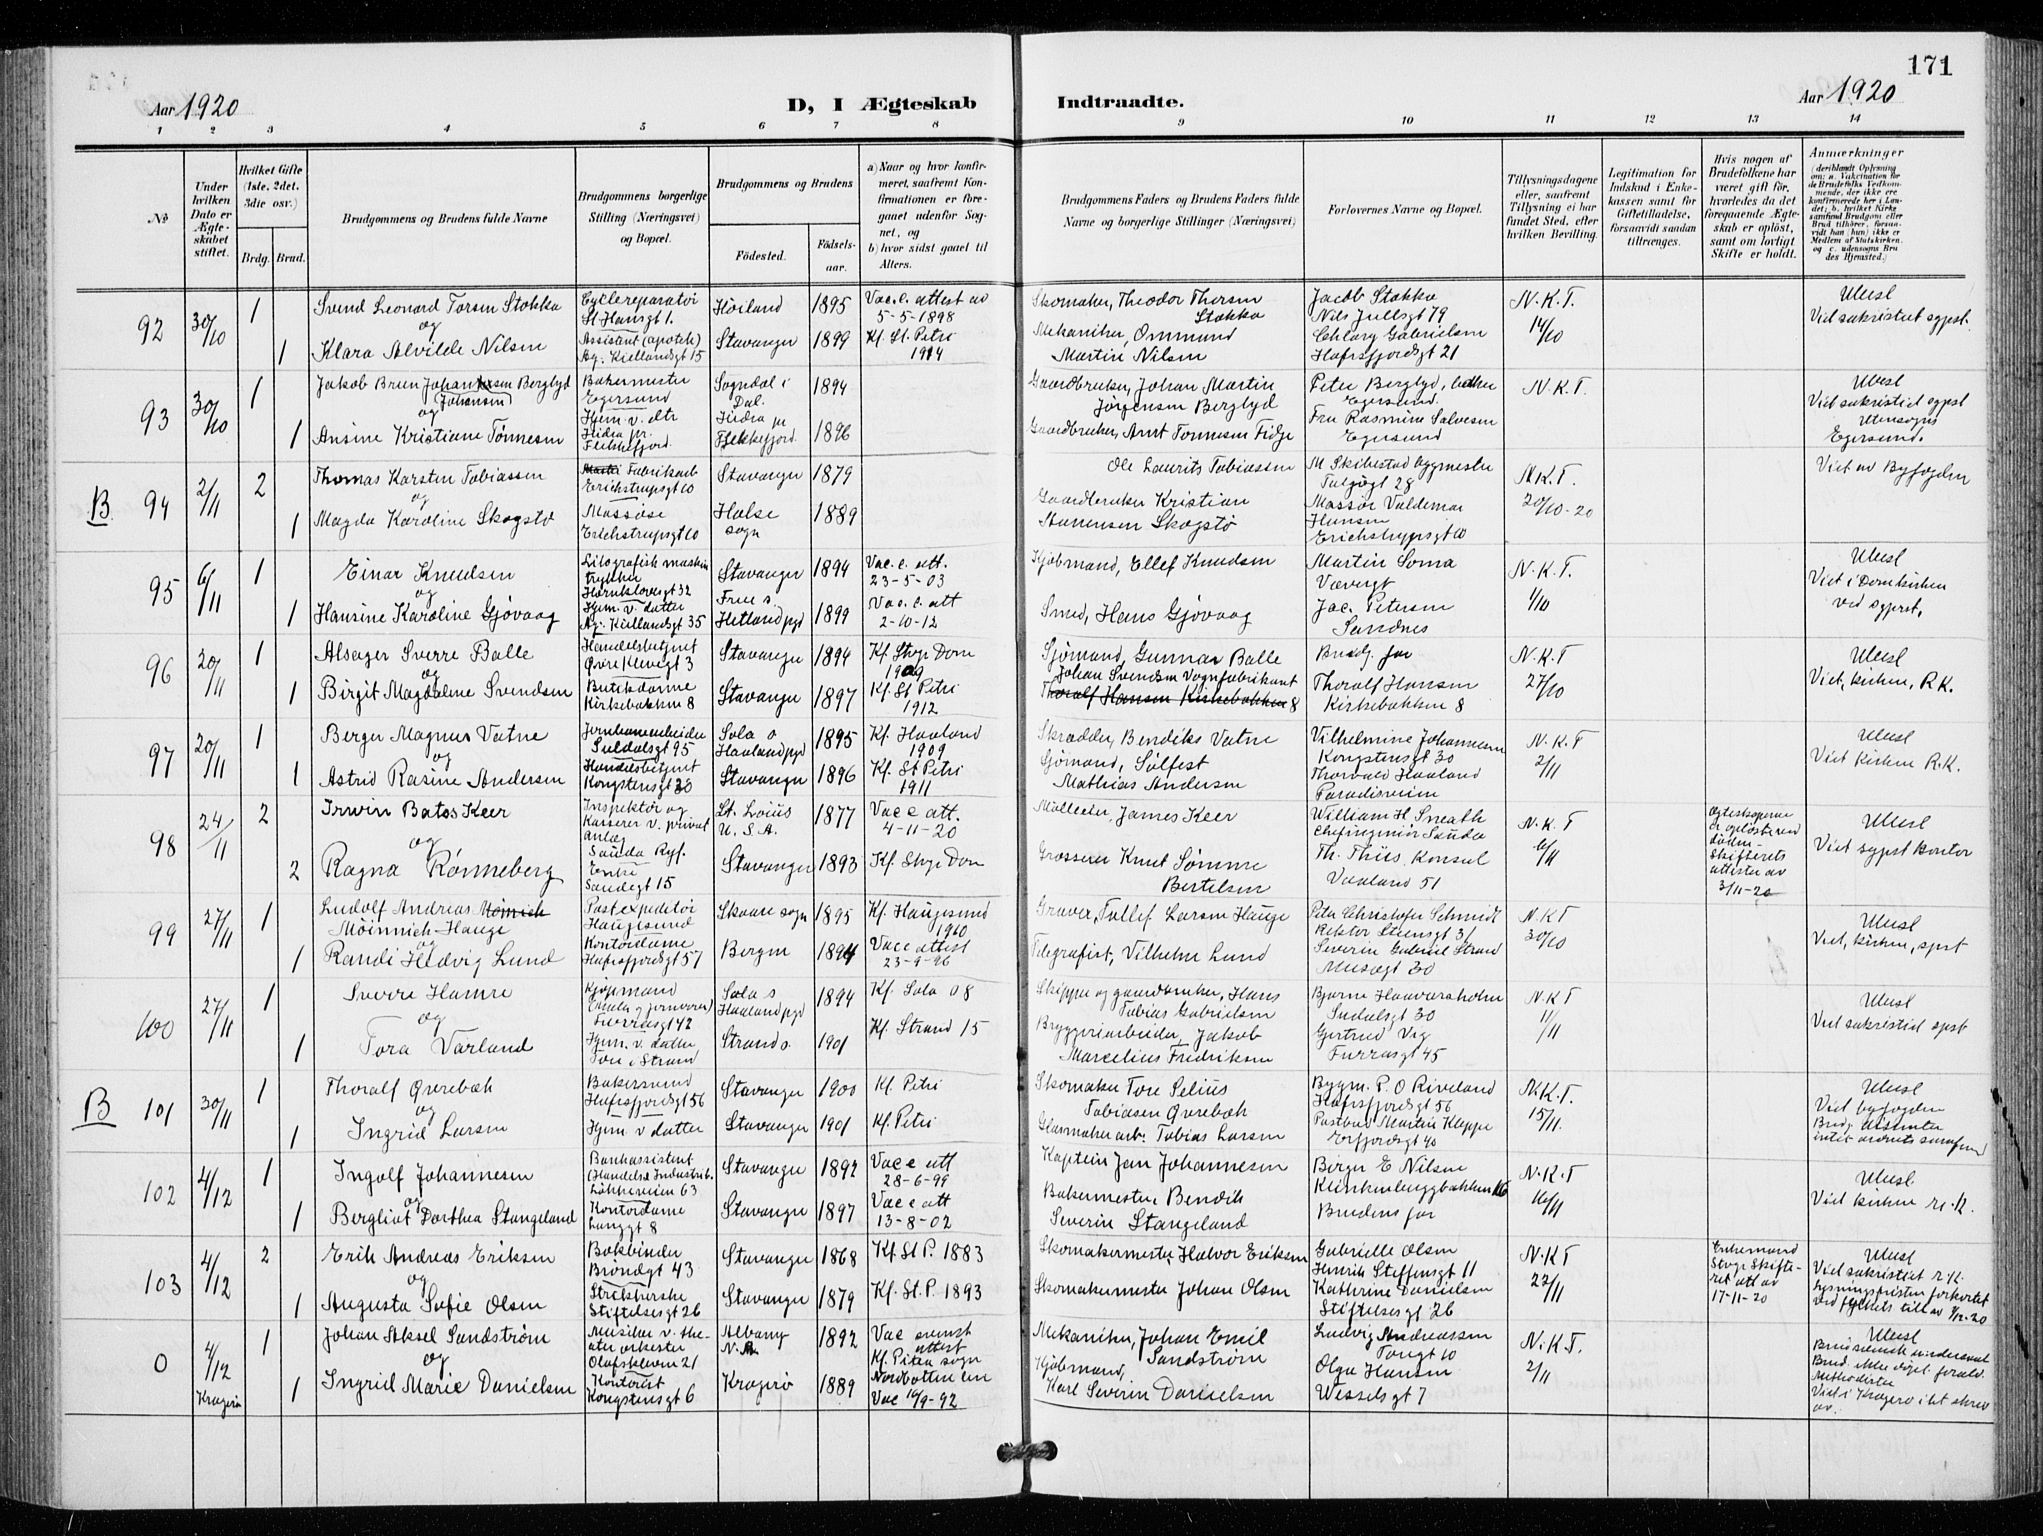 171
Aar 1920
D, I Ægteskab Indtraadte.
Aar 1920
1 2 3 4 5 6 7 8 9 10 11 12 13 14
No
Under hvilken Dato er Ægteskabet stiftet.
Hvilket Gifte (1ste, 2det. 3die osv.)
Brdg. Brud.
Brudgommens og Brudens fulde Navne
Brudgommens borgerlige Stilling (Næringsvei) og Bopæl.
Brudgommens og Brudens
Fødested.
Fødselsaar.
a) Naar og hvor konfirmeret, saafremt Konfirmationen er foregaaet udenfor Sognet, og
b) hvor sidst gaaet til Alters.
Brudgommens Faders og Brudens Faders fulde Navne og borgerlige Stillinger (Næringsvei)
Forlovernes Navne og Bopæl.
Tillysningsdagene eller, saafremt Tillysning ei har fundet Sted, efter hvilken Bevilling.
Legitimation for Indskud i Enkekassen samt for Giftetilladelse, forsaavidt saadan tiltrænges.
Hvis nogen af Brudefolkene har været gift før, hvorledes da det foregaaende Ægteskab er opløst, samt om lovligt Skifte er holdt.
Anmærkninger
92 30/10 1
Svend Leonard Torsen Stokka
og
1 Klara Alvilde Nilsen
Cyclereparatør
St Hansgt 1.
Assistent (apotek)
Ag. Kiellandsgt 15
Høiland 1895
Stavanger 1899
Vac. c. attest av
5-5-1898
Kf. St. Petri
1914
Skomaker, Theodor Thorsen
Stokka
Mekaniker, Ommund
Martin Nilsen
Jacob Stokka
Nils Juelsgt 79
Gabrielsen
Hafrsfjordsgt 21
N.K.T.
14/10
Ulesl
Viet sakristiet sgpst.
93 30/10 1
Jakob Bruun Johannesen Berglyd
(Johansen)
og
1 Ansine Kristiane Tønnesen
Bakermester
Egersund
Hjm. v. dtr
Hidra pr.
Flekkefjord.
Sogndal i
Dal. 1894
Hidra pr
Flekkefjord. 1896
Gaardbruker, Johan Martin
Jørgensen Berglyd
Gaardbruker, Arnt Tonnesen Fidje
Peter Berglyd,
Egersund.
Fru Rasmine Salvesen
Egersund
N.K.T.
Ulesl
Viet sakristiet sgpst
Utensogns
Egersund.
B. 94 2/11 2
Thomas Karsten Tobiassen
og
1 Magda Karoline Skogstø
Fabrikarb
Erichstrupsgt 10
Massøse
Erichstrupsgt 10
Stavanger 1879
Halse
sogn 1889
Ole Laurits Tobiassen
Gaardbruker Kristian
Skogstø
M Skibestad bygmester
28
Massør Valdemar
Hansen
Erichstrupsgt 10
N.K.T.
20/10-20
Viet av Byfogden
95 6/11 1
Einar Knudsen
og
1 Hansine Karoline Gjøvaag
Litografisk maskin
trykker
Hornklovesgt 32
Hjm. v. datter
Ag. Kiellandsgt 35
Stavanger 1894
Frue s.
Hetland pgd 1899
Vac. c. att.
23-5-03
Vac. c. att
2-10-12
Kjøbmand, Ellef Knudsen
Smed, Hans Gjøvaag
Martin Soma
Vævergt
Jac. Petersen
Sandnes
N.K.T.
1/10
Ulesl
Viet i Domkirken
ved sgpst.
96 20/11 1
Alsager Sverre Balle
og
1 Birgit Magdalene Svendsen
Handelsbetjent
Øvre Klevegt 3
Butikdame
Kirkebakken 8
Stavanger 1894
Stavanger 1897
Kf Stvgr Dom
1909
Kf. St Petri
1912
Sjømand, Gunnar Balle
Johan Svendsen Vognfabrikant
Thoralf Hansen Kirkebakken 8
Brudg. far
Thoralf Hansen
Kirkebakken 8
N.K.T
27/10
Ulesl
Viet, kirken, R.K.
97 20/11 1
Berger Magnus Vatne
og
1 Astrid Rasine Andersen
Jernbanearbeider
Suldalsgt 95
Handelsbetjent
Kongstensgt 30
Sola s
Haaland pgd 1895
Stavanger 1896
Kf. Haaland
1909
Kf. St Petri
1911
Skrædder, Bendiks Vatne
Sjømand, Sølfest
Mathias Andersen
Vilhelmine Johannesen
Kongstensgt 30
Thorvald Haaland
Paradisveien
N.K.T
2/11
Ulesl
Viet kirken R.K.
98 24/11 2
Irwin Bates Keer
og
2 Ragna Rønneberg
Inspektør og
Kasserer v. privat
anlæg
Sauda Ryf.
Enke
Saudegt 15
St. Loiüs
U.S.A. 1877
Stavanger 1893
Vac c att.
4-11-20
Kf. Stvgr Dom
James Keer
Grosserer Knut Sømme
Bertelsen
William H Sneath
Chefingeniør Sauda
Th. Thiis, Konsul
Vaaland 51
N.K.T
6/11
Ægteskaperne
er opløst ved
døden
Skifterets
attester av
3/11-20
Ulesl
Viet sgpst kontor
99 27/11 1
Ludolf Andreas Møinich
Møinnich-Hauge
og
1 Randi Hedvig Lund
Postexpeditør
Haugesund
Kontordame
Hafrsfjordsgt 57
Skaare sogn 1895
Bergen 1894
Kf. Haugesund
1910
Vac c attest
23-9-96
Graver, Tollef Larsen Hauge
Telegrafist, Vilhelm Lund
Peter Christofer Schmidt
Rektor Steensgt 31
Severin Gabriel Strand
Musægt 30
N.K.T
30/10
Ulesl
Viet, kirken, spst
100 27/11 1
Sverre Hamre
og
1 Tora Varland
Kjøpmand
Furrasgt 42
Hjm. v. datter
Tou i Strand
Sola s
Haaland pgd 1894
Strand s. 1901
Kf. Sola 08
Kf. Strand 15
Skipper og gaardbruker, Hans
Tobias Gabrielsen
Bryggeriarbeider, Jakob
Marcelius Fredriksen
Bjarne Haavarsholm
Suldalsgt 30
Gertrud Vig
Furrasgt 45
N.K.T
11/11
Ulesl
Viet sakristiet spst
B 101 30/11 1
Thoralf Qverebæk
og
1 Ingrid Larsen
Bakersvend
Hafrsfjordsgt 56
Hjm. v datter
Stavanger 1900
Stavanger 1901
Kf. Petri
Kf. Petri
Skomaker Tore Selius
Tobiasen Qverebæk
Glasmakerarb. Tobias Larsen
Bygm. P. O Riveland
Hafrsfjordsgt 56
Postbud Martin Kleppe
Erfjordsgt 40
N.K.T.
15/11.
Ulesl
Viet byfogden
102 4/12 1
Ingolf Johannesen
og
1 Bergliot Dorthea Stangeland
Bankassistent
Løkkeveien 63
Kontordame
Langgt 8
Stavanger 1892
Stavanger 1897
Vac c att
28-6-99
Vac c att
13-8-02
Kaptein Jan Johannesen
Bakermester Bendik
Severin Stangeland
Birger E Nilsen
Klinkenbergbakken 16
Brudens far
N.K.T
16/11
Ulesl
Viet kirken r.K.
103 4/12 2
Erik Andreas Eriksen
og
1 Augusta Sofie Olsen
Bokbinder
Brøndgt 43
Strikkerske
Stiftelsesgt 26
Stavanger 1868
Stavanger 1879
Kf. St P. 1883
Kf. St. P. 1893
Skomakermester Halvor Eriksen
Skomakermester Johan Olsen
Gabrielle Olsen
Henrik Steffensgt 11
Kathrine Danielsen
Stiftelsesgt 26
N.K.T
22/11
Enkemand
Stvgr Skifteret att av
17-11-20
Ulesl
Viet sakristiet r.K.
Lysningsfristen forkortet
ved fylkets till av 1/12-20
0 4/12
Kragerø 1
Johan Aksel Sandstrøm
og
1 Ingrid Marie Danielsen
Musiker v. theater orkester
Olafskleven 21
Kontorist
Kongstensgt 6
Albany
N.A. 1892
Kragerø 1889
Vac svensk
attest
Kf. Pitea sogn
Nordbotten len
Vac 10/9-92
Mekaniker, Johan Emil
Sandstrøm
Kjøbmand,
Karl Severin Danielsen
Ludvig Andreassen
Tougt 10
Olga Hansen
Wesselsgt 7
N.K.T.
2/11
Ulesl
Methodister
Viet i Kragerø